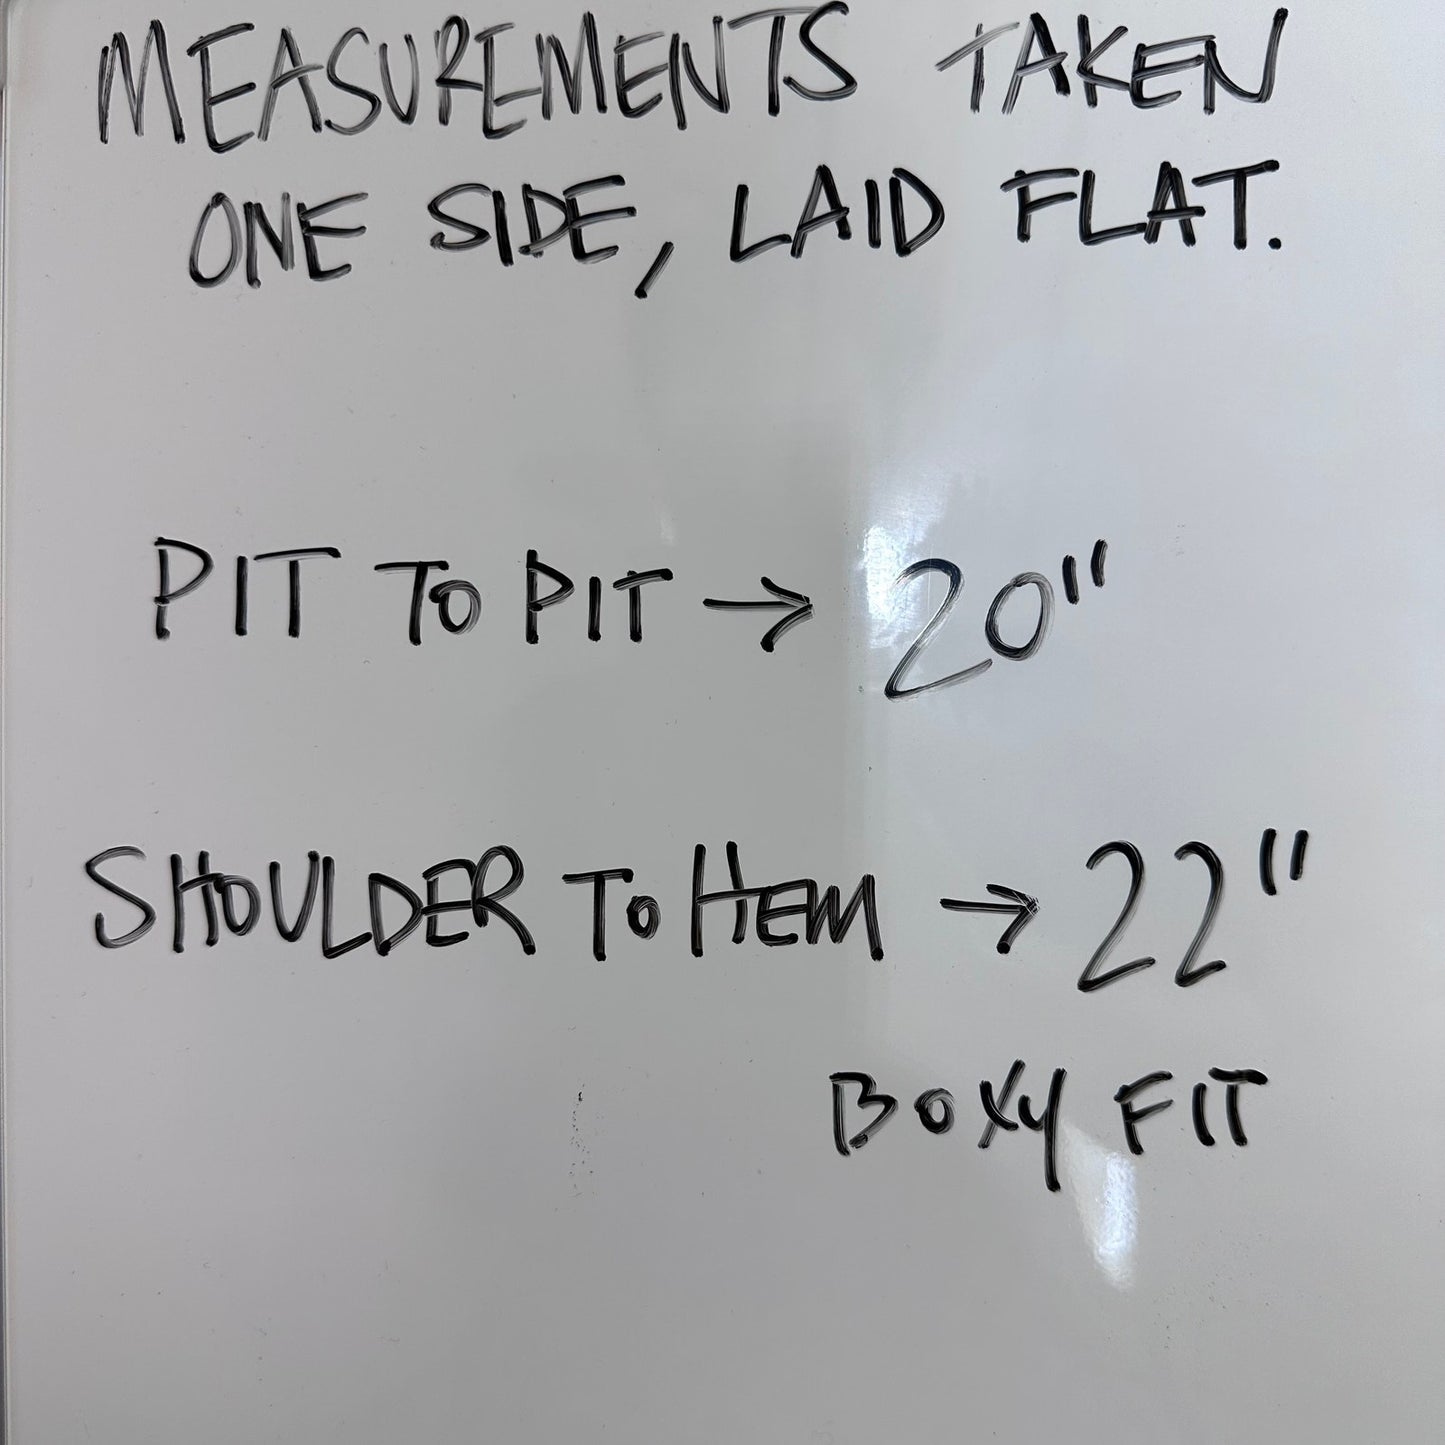 MEASUREMENTS TAKEN
ONE SIDE, LAID FLAT.
PIT TO PIT → 20"
SHOULDER TO HEM → 22"
BOXY FIT